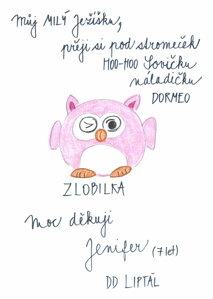 můj MILÝ Ježíšku,
přeji si pod stromeček
HOO-HOO Sovičku
náladičku
DORMEO
ZLOBILKA
Moc děkuji
Jenifer (7 let)
DD LIPTÁL